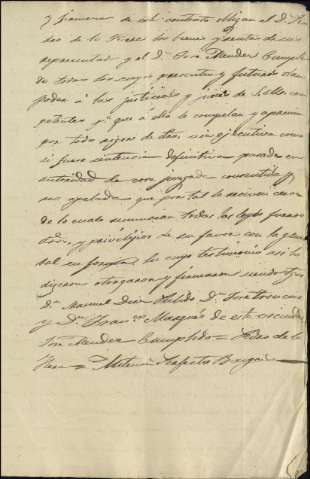 y firmeza de este contrato obligan el D.n Pe
dro de la Rosa los bienes y rentas de su
representado y el D.n José Mendez Cumplido
de todos los suyos presentes y futuros dan
poder á los justicias y jueces de
petentes p.a que á ello le compelan y apremien
por todo rigor de dro. via ejecutiva como
si fuese sentencia definitiva pasada en
autoridad de cosa juzgada consentida y
no apelada que por tal lo reciben
de lo cual renuncian todas las leyes fueros
dros. y privilejios de su favor con la general
del en forma. En cuyo testimonio asi lo
dijeron otorgaron y firmaron siendo tgos
D.n Manuel Diaz D.n José Troncoso
y D.n Fran.co Marqués de este vecindario
José Mendez Cumplido = Pedro de la
Rosa =